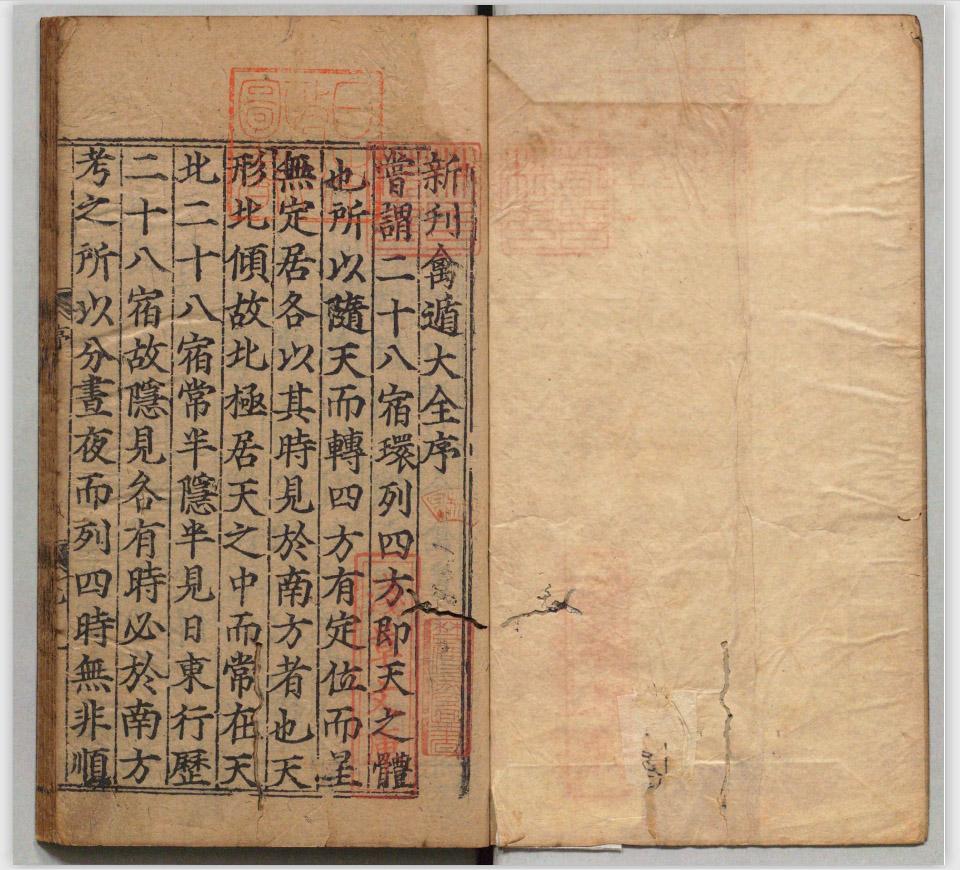 新刋禽遁大全序
甞謂二十八宿環列四方即天之體
也所以隨天而轉四方有定位而星
無定居各以其時見於南方者也天
形北傾故北極居天之中而常在天
北二十八宿常半隱半見日東行歷
二十八宿故隱見各有時必於南方
考之所以分晝夜而列四時無非順
序